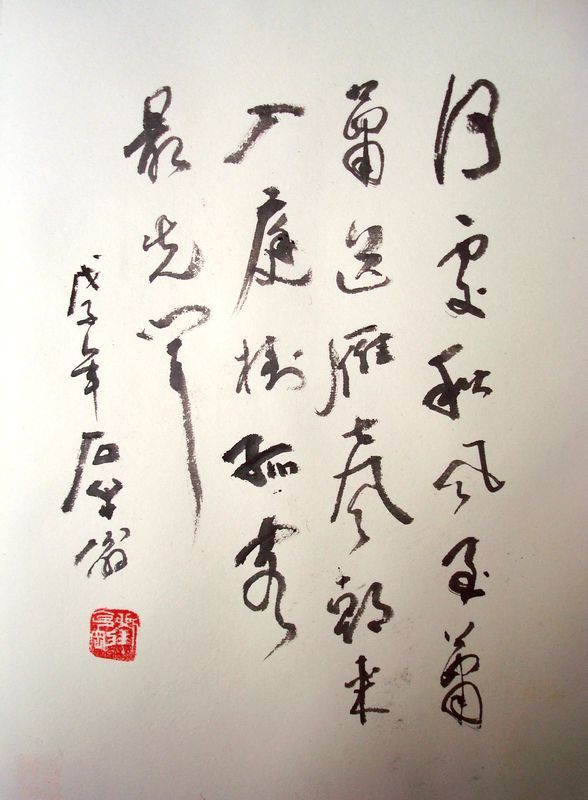 何處秋風至蕭
蕭送雁羣朝來
入庭樹孤客
最先聞
戊子年石翁